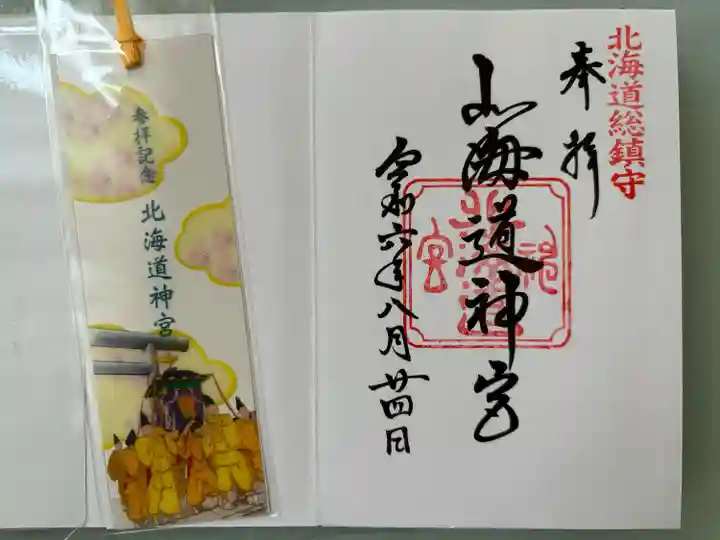 北海道総鎮守
奉拝
北海道神宮
令和六年八月廿四日
北海道神宮
参拝記念
北海道神宮